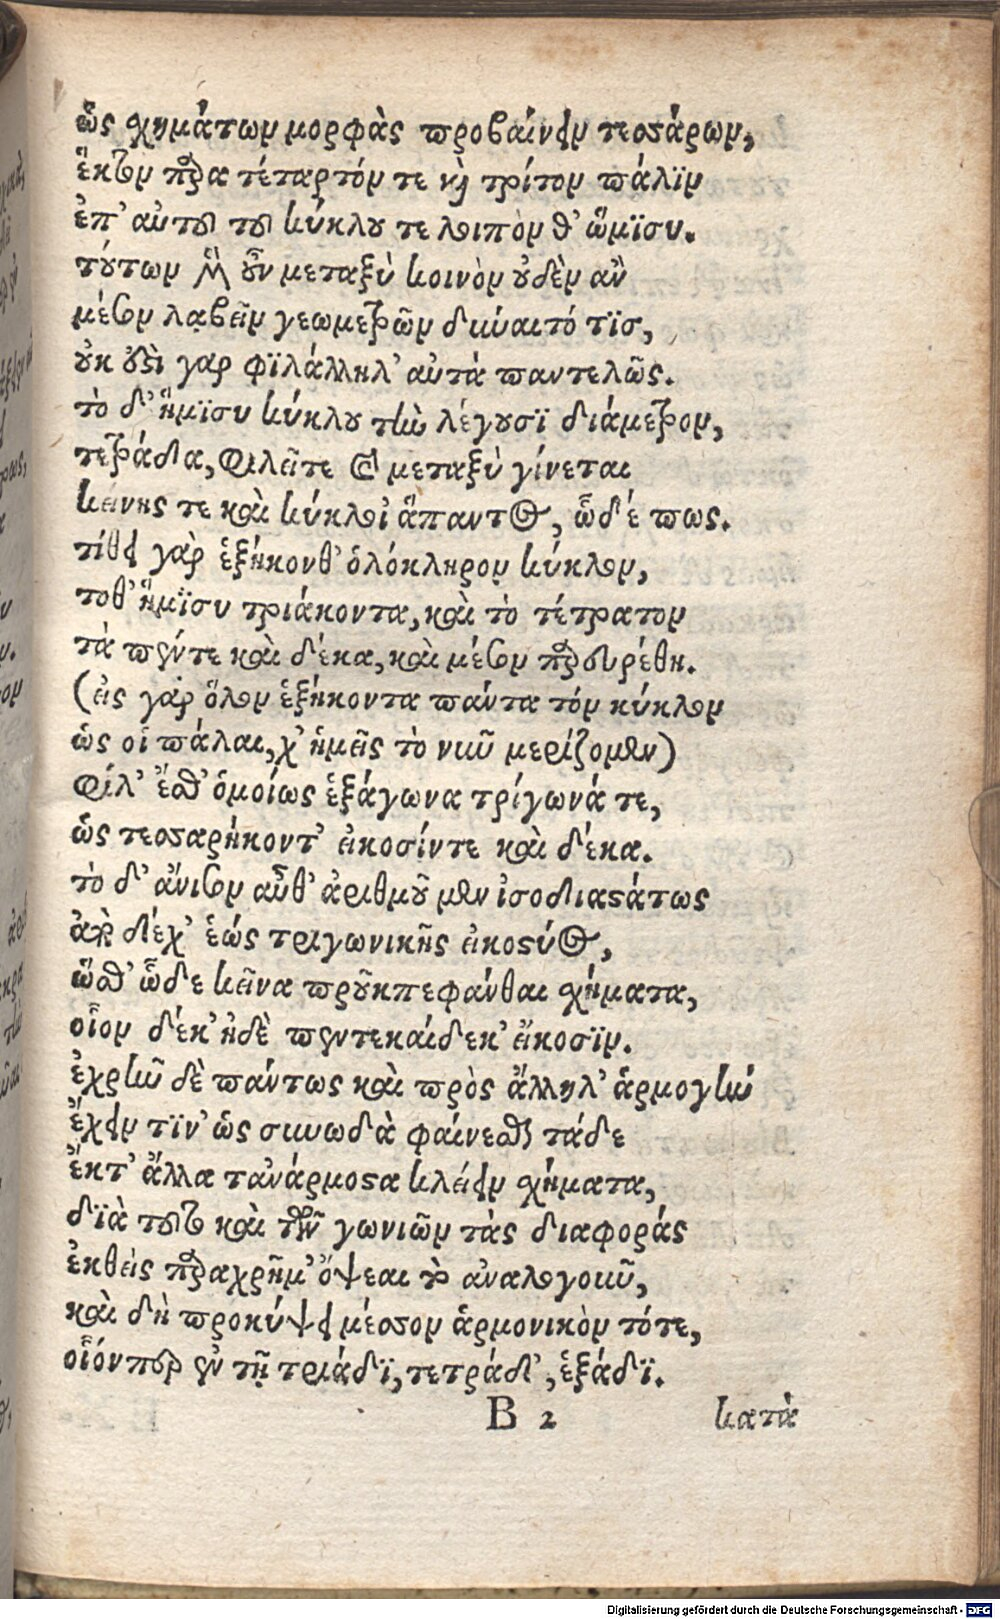 ὣς χημάτων μορφὰς προβαίνειν τεσσάρων,
ἕκτον παρὰ τέταρτόν τε καὶ τρίτον πάλϊν
ἐπ' αὐτοῦ τοῦ κύκλου τε λοιπὸν θ' ὥμϊσυ.
τούτων μὲν οὖν μεταξὺ κοινὸν οὐδὲν ἂν
μέσον λαβεῖν γεωμετρῶν δύναιτό τϊσ,
οὐκ ὄντα γαρ φϊλάλληλ' αὐτὰ παντελῶς.
τὸ δ' ἥμϊσυ κύκλου τὴν λέγουσϊ διάμετρον,
τετράδια, φιλεῖτε καὶ μεταξὺ γίνεται
κείνης τε καὶ κύκλοι ἅπαντος, ὧδέ πως.
τίθει γὰρ ἑξήκονθ' ὁλόκληρον κύκλον,
τοθ' ἥμϊσυ τριάκοντα, καὶ τὸ τέτρατον
τὰ πέντε καὶ δέκα, καὶ μέσον παρευρέθη.
(εἰς γὰρ ὅλον ἑξήκοντα πάντα τόν κύκλον
ὡς οἱ πάλαι, χ' ἡμεῖς τὸ νῦν μερίζομεν)
φίλ' ἔσθ' ὁμοίως ἑξάγωνα τρίγωνά τε,
ὡς τεσσαρήκοντ' εἰκοσίντε καὶ δέκα.
τὸ δ' ἄνισον αὖθ' ἀριθμοῦ μὲν ἰσοδιαστάτως
ἀπὸ δέχ' ἑώς τριγωνικῆς εἰκοστύος,
ὥσθ' ὧδε κεῖνα προὐκπεφάνθαι χήματα,
οἷον δέκ' ἠδὲ πεντεκαίδεκ' εἴκοσϊν.
ἐχρῆν δὲ πάντως καὶ πρὸς ἄλληλ' ἁρμογὴν
ἔχειν τϊν' ὡς συνωδὰ φαίνεσθαι τάδε
ἔκτ' ἄλλα τἀνάρμοστα κλείειν χήματα,
δϊὰ τοῦτο καὶ τῶν γωνιῶν τὰς διαφοράς
ἐκθεὶς παραχρῆμ' ὄψεαι τὸ ἀναλογοῦν,
καὶ δὴ προκύψει μέσσον ἁρμονικὸν τότε,
οἷόνπερ ἐν τῇ τριάδϊ, τετράδι, ἑξάδϊ.
B 2 κατὰ
Digitalisierung gefördert durch die Deutsche Forschungsgemeinschaft - DFG